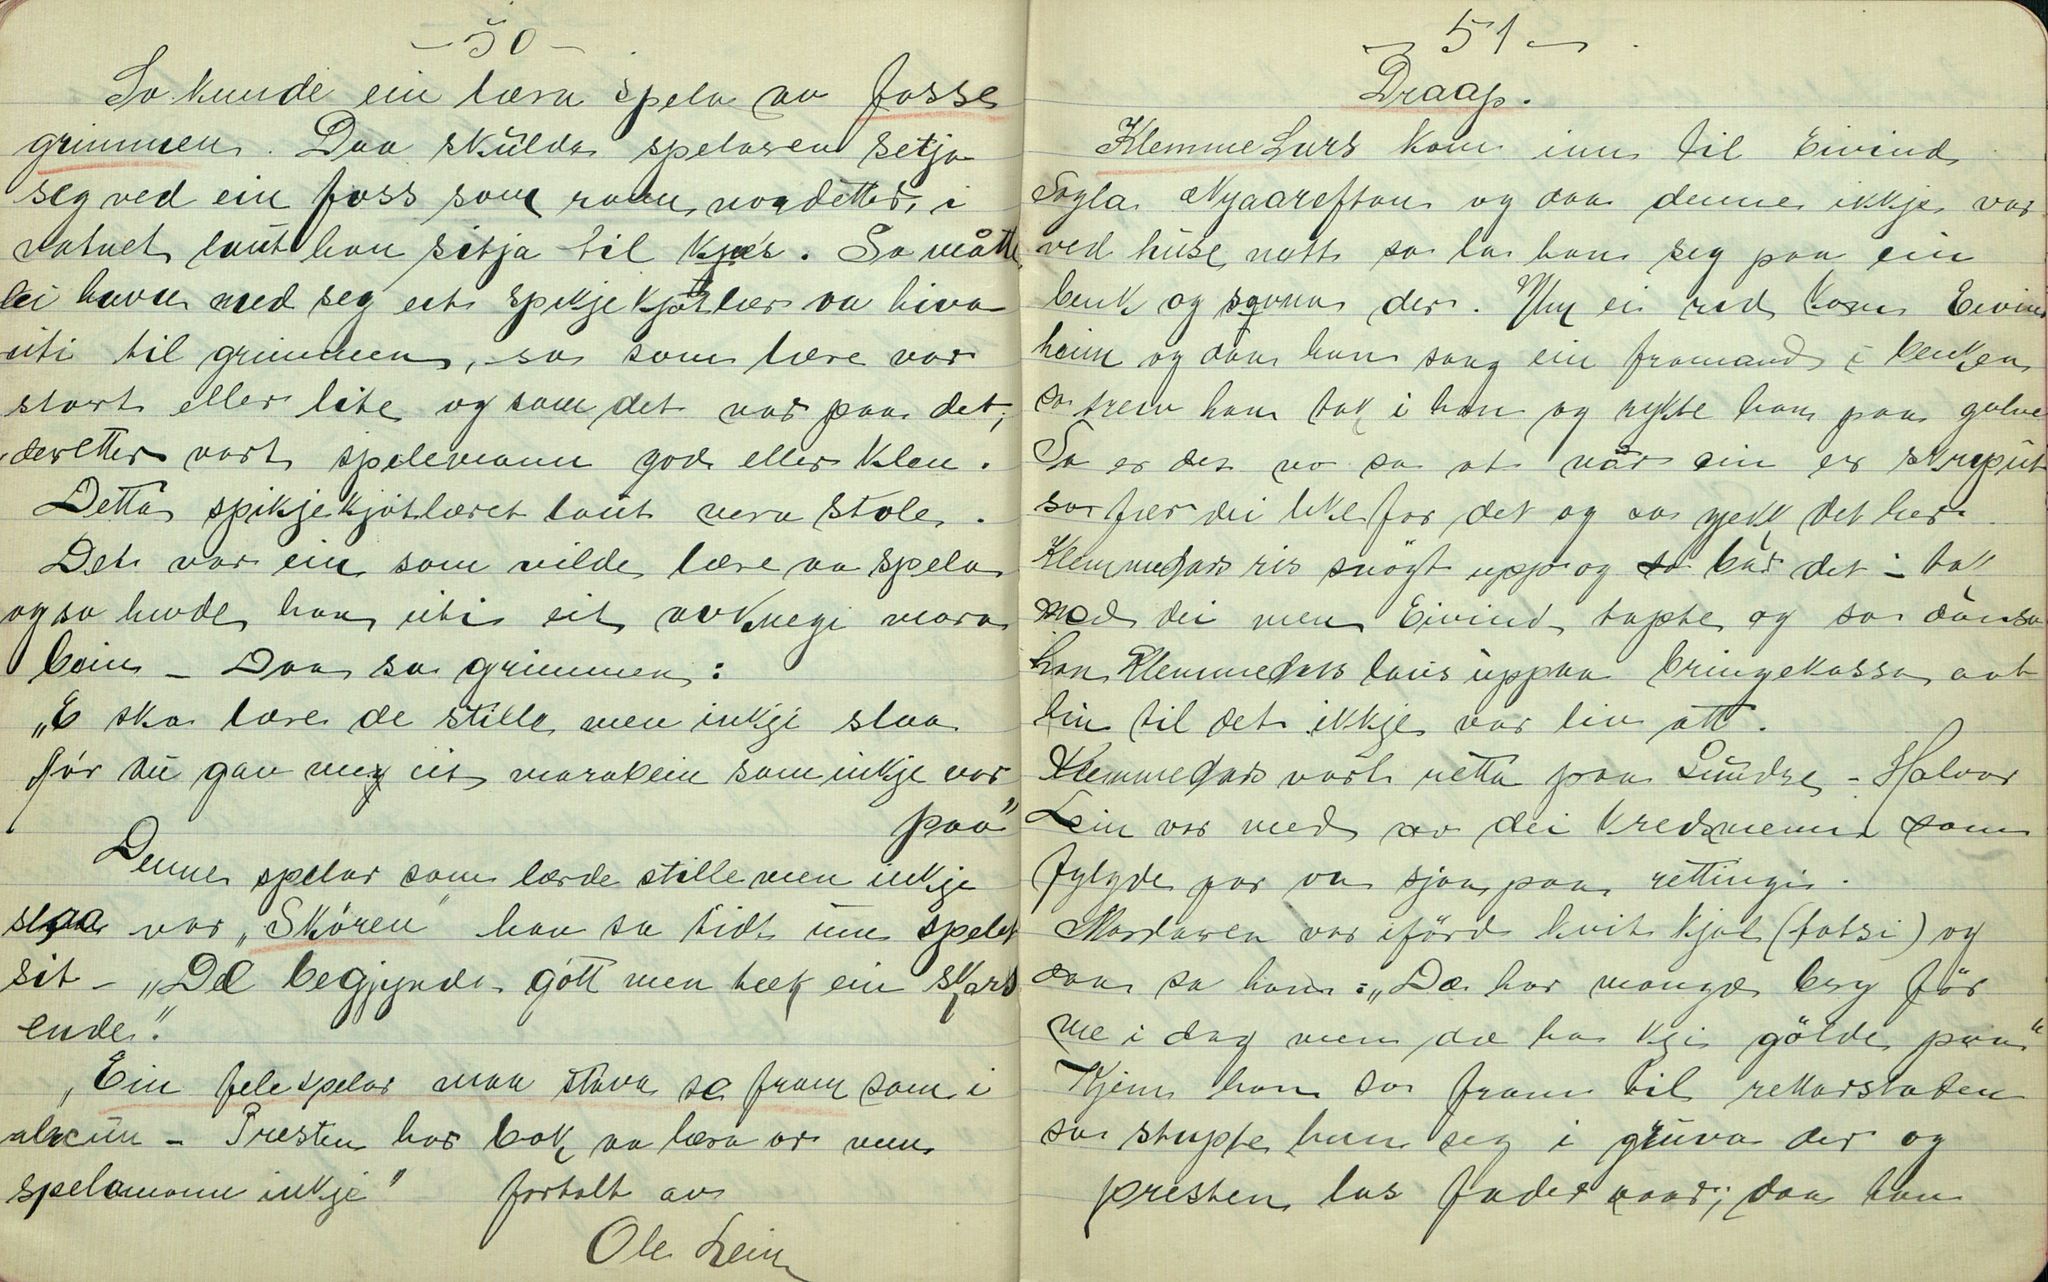 - 50 -
So kunde ein læra spela av fosse
grimmen. Daa skulde spelaren setja
seg ved ein foss som rann nordetter, i
vatnet laut han sitja til knes. So måtte
ei hava med seg eit spikjekjøtlær aa hiva
uti til grimmen, so som lære var
stort eller lite og som det var paa det,
deretter vart spelemann god eller klen.
Detta spikjekjøtlæret laut vera stole.
Det var ein som vilde lære aa spela
og so hivde han uti eit avknegi mara
bein - Daa sa grimmen:
„E ska lære de stille men inkji slaa
før du gav meg eit marabein som inkje var
paa"
Denne spelar som lærde stille men inkje
slaa var „Skören" han sa tidt um spelet
sit - „De begjynda gott men heek ein skars
ende".
„Ein felespelar maa stava se fram som i
alcun - Presten har bok aa læra or men
spelamann inkje" fortalt av
Ole Lein
- 51 -
Draap.
KlemmeLars kom inn til Eivind
Sogla Nyaareftan og daa denne ikkje var
ved huse nott so la han seg paa ein
benk og sovna der. Um ei rid kom Eivind
heim og daa han saag ein framand i benken
so treiv han tak i han og rykte han paa golve
So er det no so at når ein er skreput
so fær dei like for det og so gjekk det her
KlemmeLars ris snögt upp og so bar det i tak
med dei men Eivind tapte og so dansa
han KlemmeLars laus uppaa bringekassa aat
hin til det ikkje var liv att.
KlemmeLars vart retta paa Sundre - Halvor
Lein var med av dei kredsmenni som
fylgde for aa sjaa paa rettingi.
Mordaren var iförd kvit kjol (fotsi) og
daa sa han: „Dæ har mangæ bry för
me i dag men dæ ha kji gölde paa"
Kjem han so fram til rettarstaden
so stupte han seg i gruva der og
presten las fader vaar; daa han